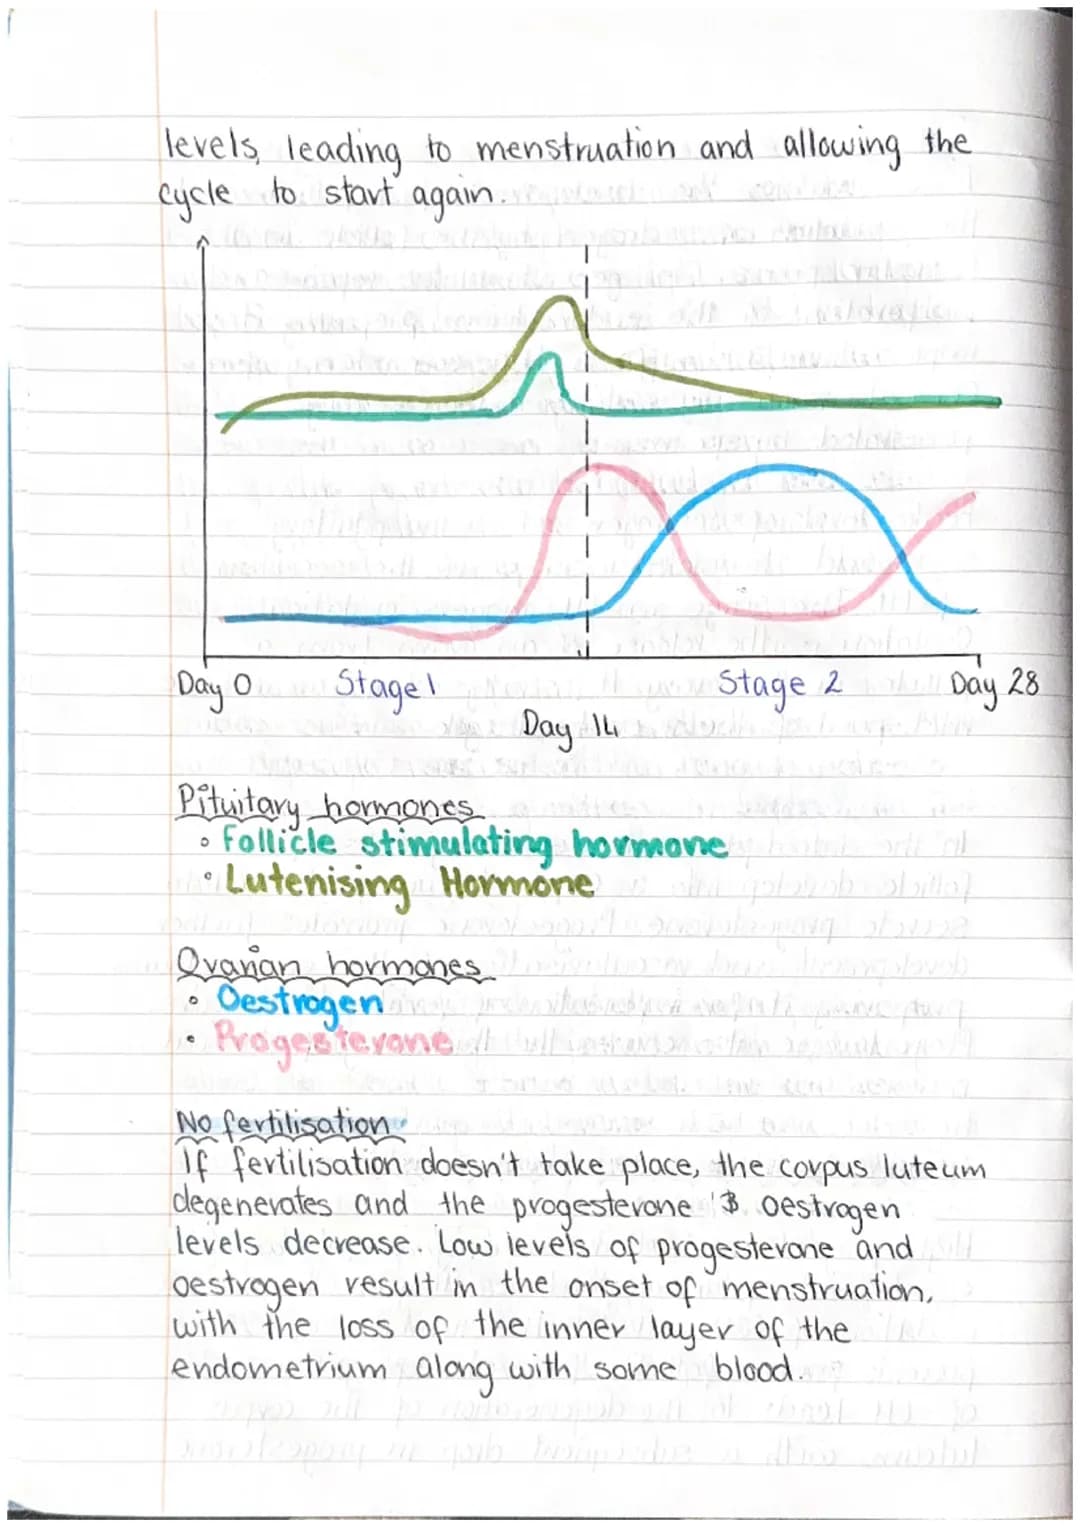 levels, leading to menstruation and allowing the
cycle to start again.
Day 0
Stage 1
Stage 2
Day 28
Day 14
Pituitary hormones
• Follicle stimulating hormone
• Lutenising Hormone
Ovarian hormones
• Oestrogen
• Progesterone
No fertilisation
If fertilisation doesn't take place, the corpus luteum
degenerates and the progesterone & oestrogen
levels decrease. Low levels of progesterone and
oestrogen result in the onset of menstruation,
with the loss of the inner layer of the
endometrium along with some blood.